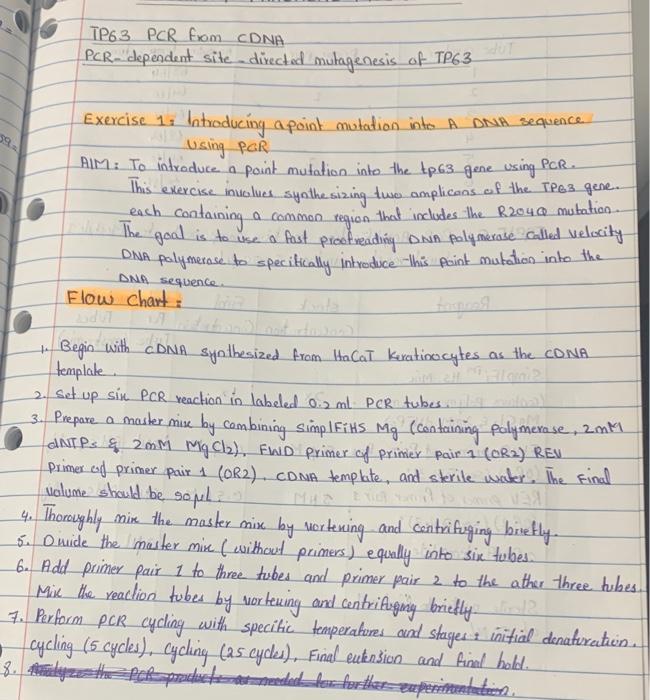 TP63 PCR from cDNA
PCR-dependent site-directed mutagenesis of TP63
Exercise 1: Introducing a point mutation into A DNA sequence
Using PCR
AIM: To introduce a point mutation into the tp63 gene using PCR.
This exercise involves synthesizing two amplicons of the TP63 gene.
each containing a common region that includes the R204Q mutation.
The goal is to use a fast proofreading DNA polymerase called velocity
DNA polymerase to specifically introduce this point mutation into the
DNA sequence.
Flow Chart:
1. Begin with cDNA synthesized from HaCaT Keratinocytes as the cDNA
template.
2. Set up six PCR reaction in labeled 0.2 ml PCR tubes.
3. Prepare a master mix by combining SimpliFiHS Mg (containing polymerase, 2mM
dNTPs & 2mM MgCl2), FWD primer of primer pair 1 (OR2) REV
primer of primer pair 1 (OR2), cDNA template, and sterile water. The Final
volume should be 50µl.
4. Thoroughly mix the master mix by vortexing and centrifuging briefly.
5. Divide the master mix (without primers) equally into six tubes.
6. Add primer pair 1 to three tubes and primer pair 2 to the other three tubes.
Mix the reaction tubes by vortexing and centrifuging briefly
7. Perform PCR cycling with specific temperatures and stages: initial denaturation.
cycling (5 cycles), cycling (25 cycles), Final extension and final hold.
8. Analyze the PCR products as needed for further experimentation.